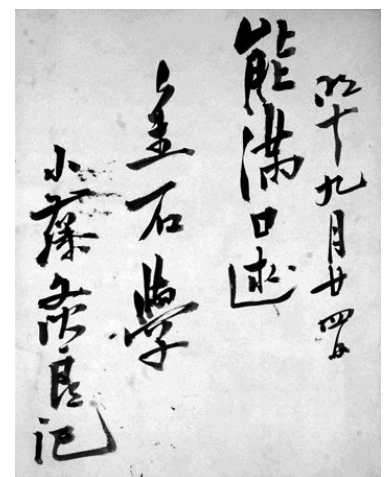 明十九月廿四日
能満口述
金石學
小藤文次良記